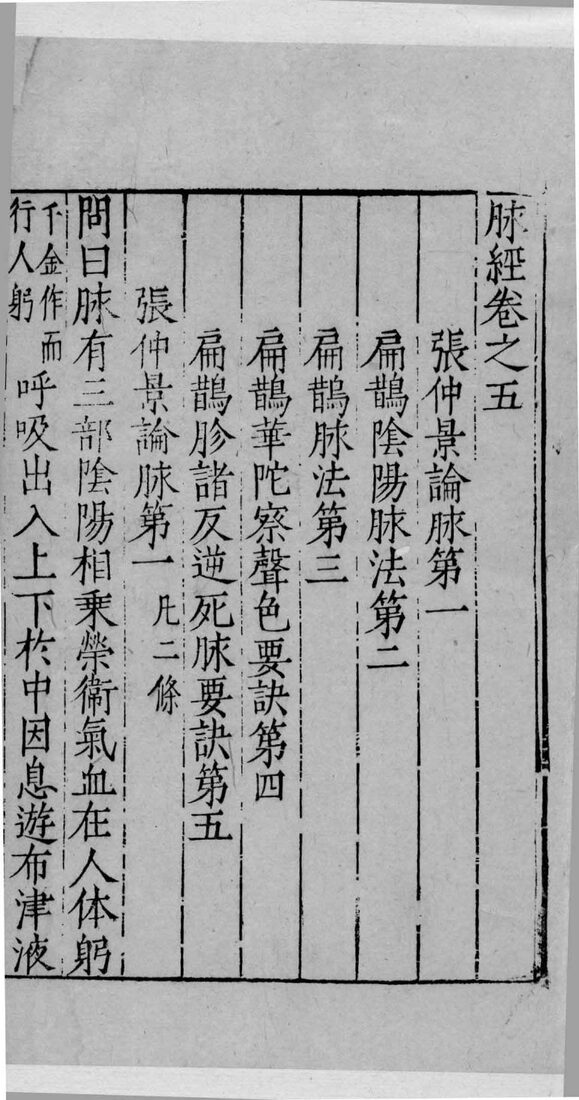 脉經卷之五
張仲景論脉第一
扁鵲陰陽脉法第二
扁鵲脉法第三
扁鵲華陀察聲色要訣第四
扁鵲胗諸反逆死脉要訣第五
張仲景論脉第一 凡二條
問曰脉有三部陰陽相乗榮衛氣血在人体躬
千金作而行人躬呼吸出入上下於中因息遊布津液